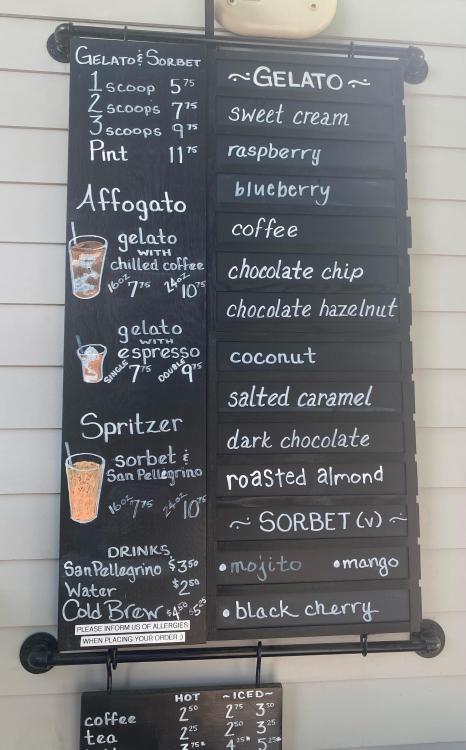 GELATO & SORBET
1 scoop 5 75
2 scoops 7 75
3 scoops 9 75
Pint 11 75
Affogato
gelato
WITH
chilled coffee
16oz 7 75 24oz 10 75
gelato
WITH
espresso
SINGLE 7 75 DOUBLE 9 75
Spritzer
sorbet &
San Pellegrino
16oz 7 75 24oz 10 75
DRINKS
San Pellegrino $3 50
Water $2 50
Cold Brew $4 50 $5 25
PLEASE INFORM US OF ALLERGIES
WHEN PLACING YOUR ORDER :)
~GELATO~
sweet cream
raspberry
blueberry
coffee
chocolate chip
chocolate hazelnut
coconut
salted caramel
dark chocolate
roasted almond
~ SORBET (v) ~
• mojito • mango
• black cherry
HOT ~ICED~
coffee 2 50 2 75 3 50
tea 2 25 2 50 3 25
3 75* 4 25* 5 25*